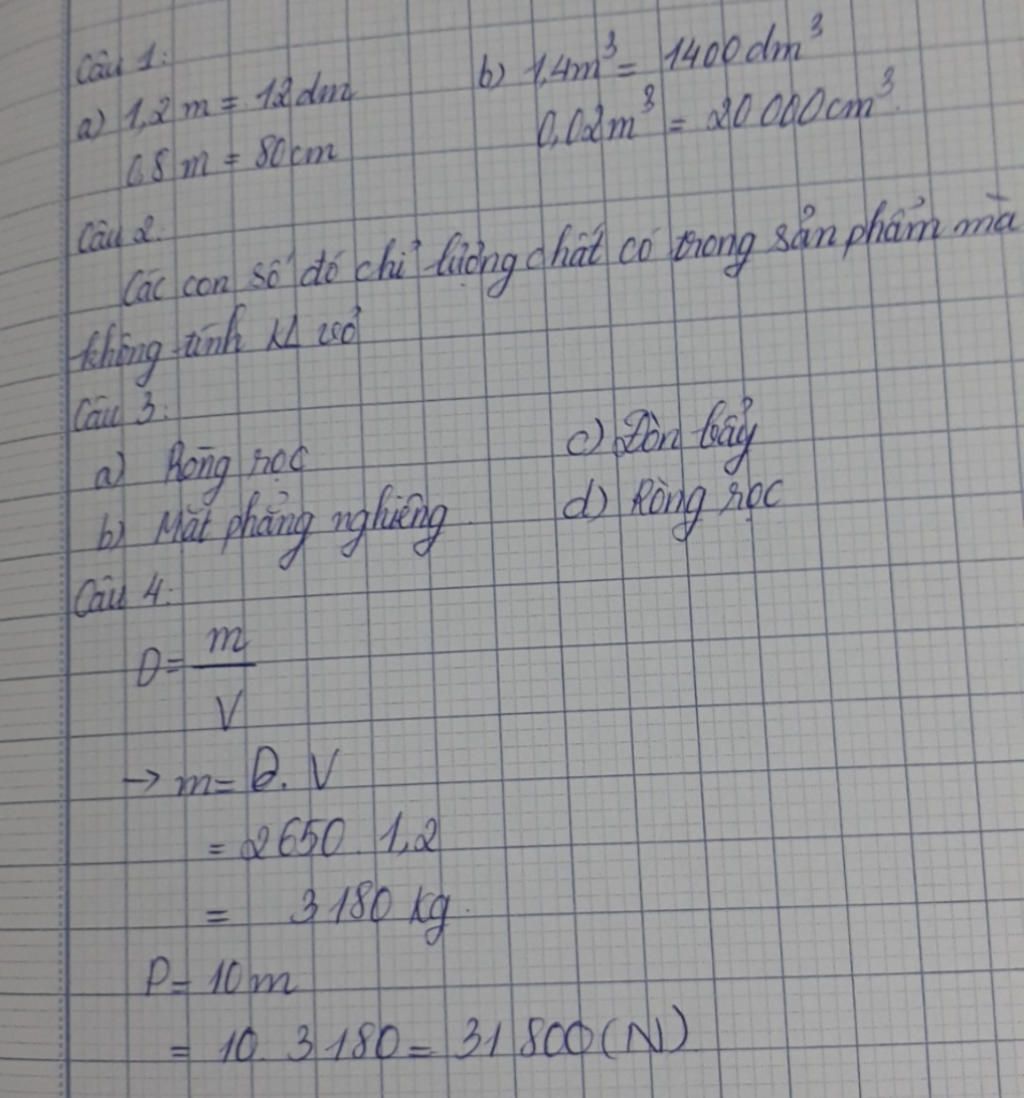 Câu 1:
a) 1,2 m = 12 dm
0,8 m = 80 cm
b) 1,4m³ = 1400 dm³
0,02m³ = 20 000cm³.
Câu 2.
Các con số đó chỉ lượng chất có trong sản phẩm mà
không tính KL vỏ
Câu 3:
a) Ròng rọc
b) Mặt phẳng nghiêng
c) Đòn bẩy
d) Ròng rọc
Câu 4:
D = m/V
→ m = D. V
= 2650 . 1,2
= 3 180 kg.
P = 10 m
= 10. 3 180 = 31 800 (N)